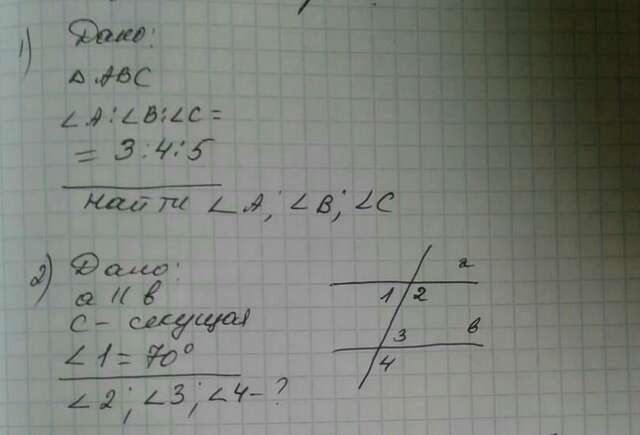 1) Дано:
△ ABC
∠A:∠B:∠C =
= 3:4:5
Найти ∠A; ∠B; ∠C
2) Дано:
a || в
c – секущая
∠1 = 70°
∠2; ∠3; ∠4 – ?
a
1 2
3 в
4